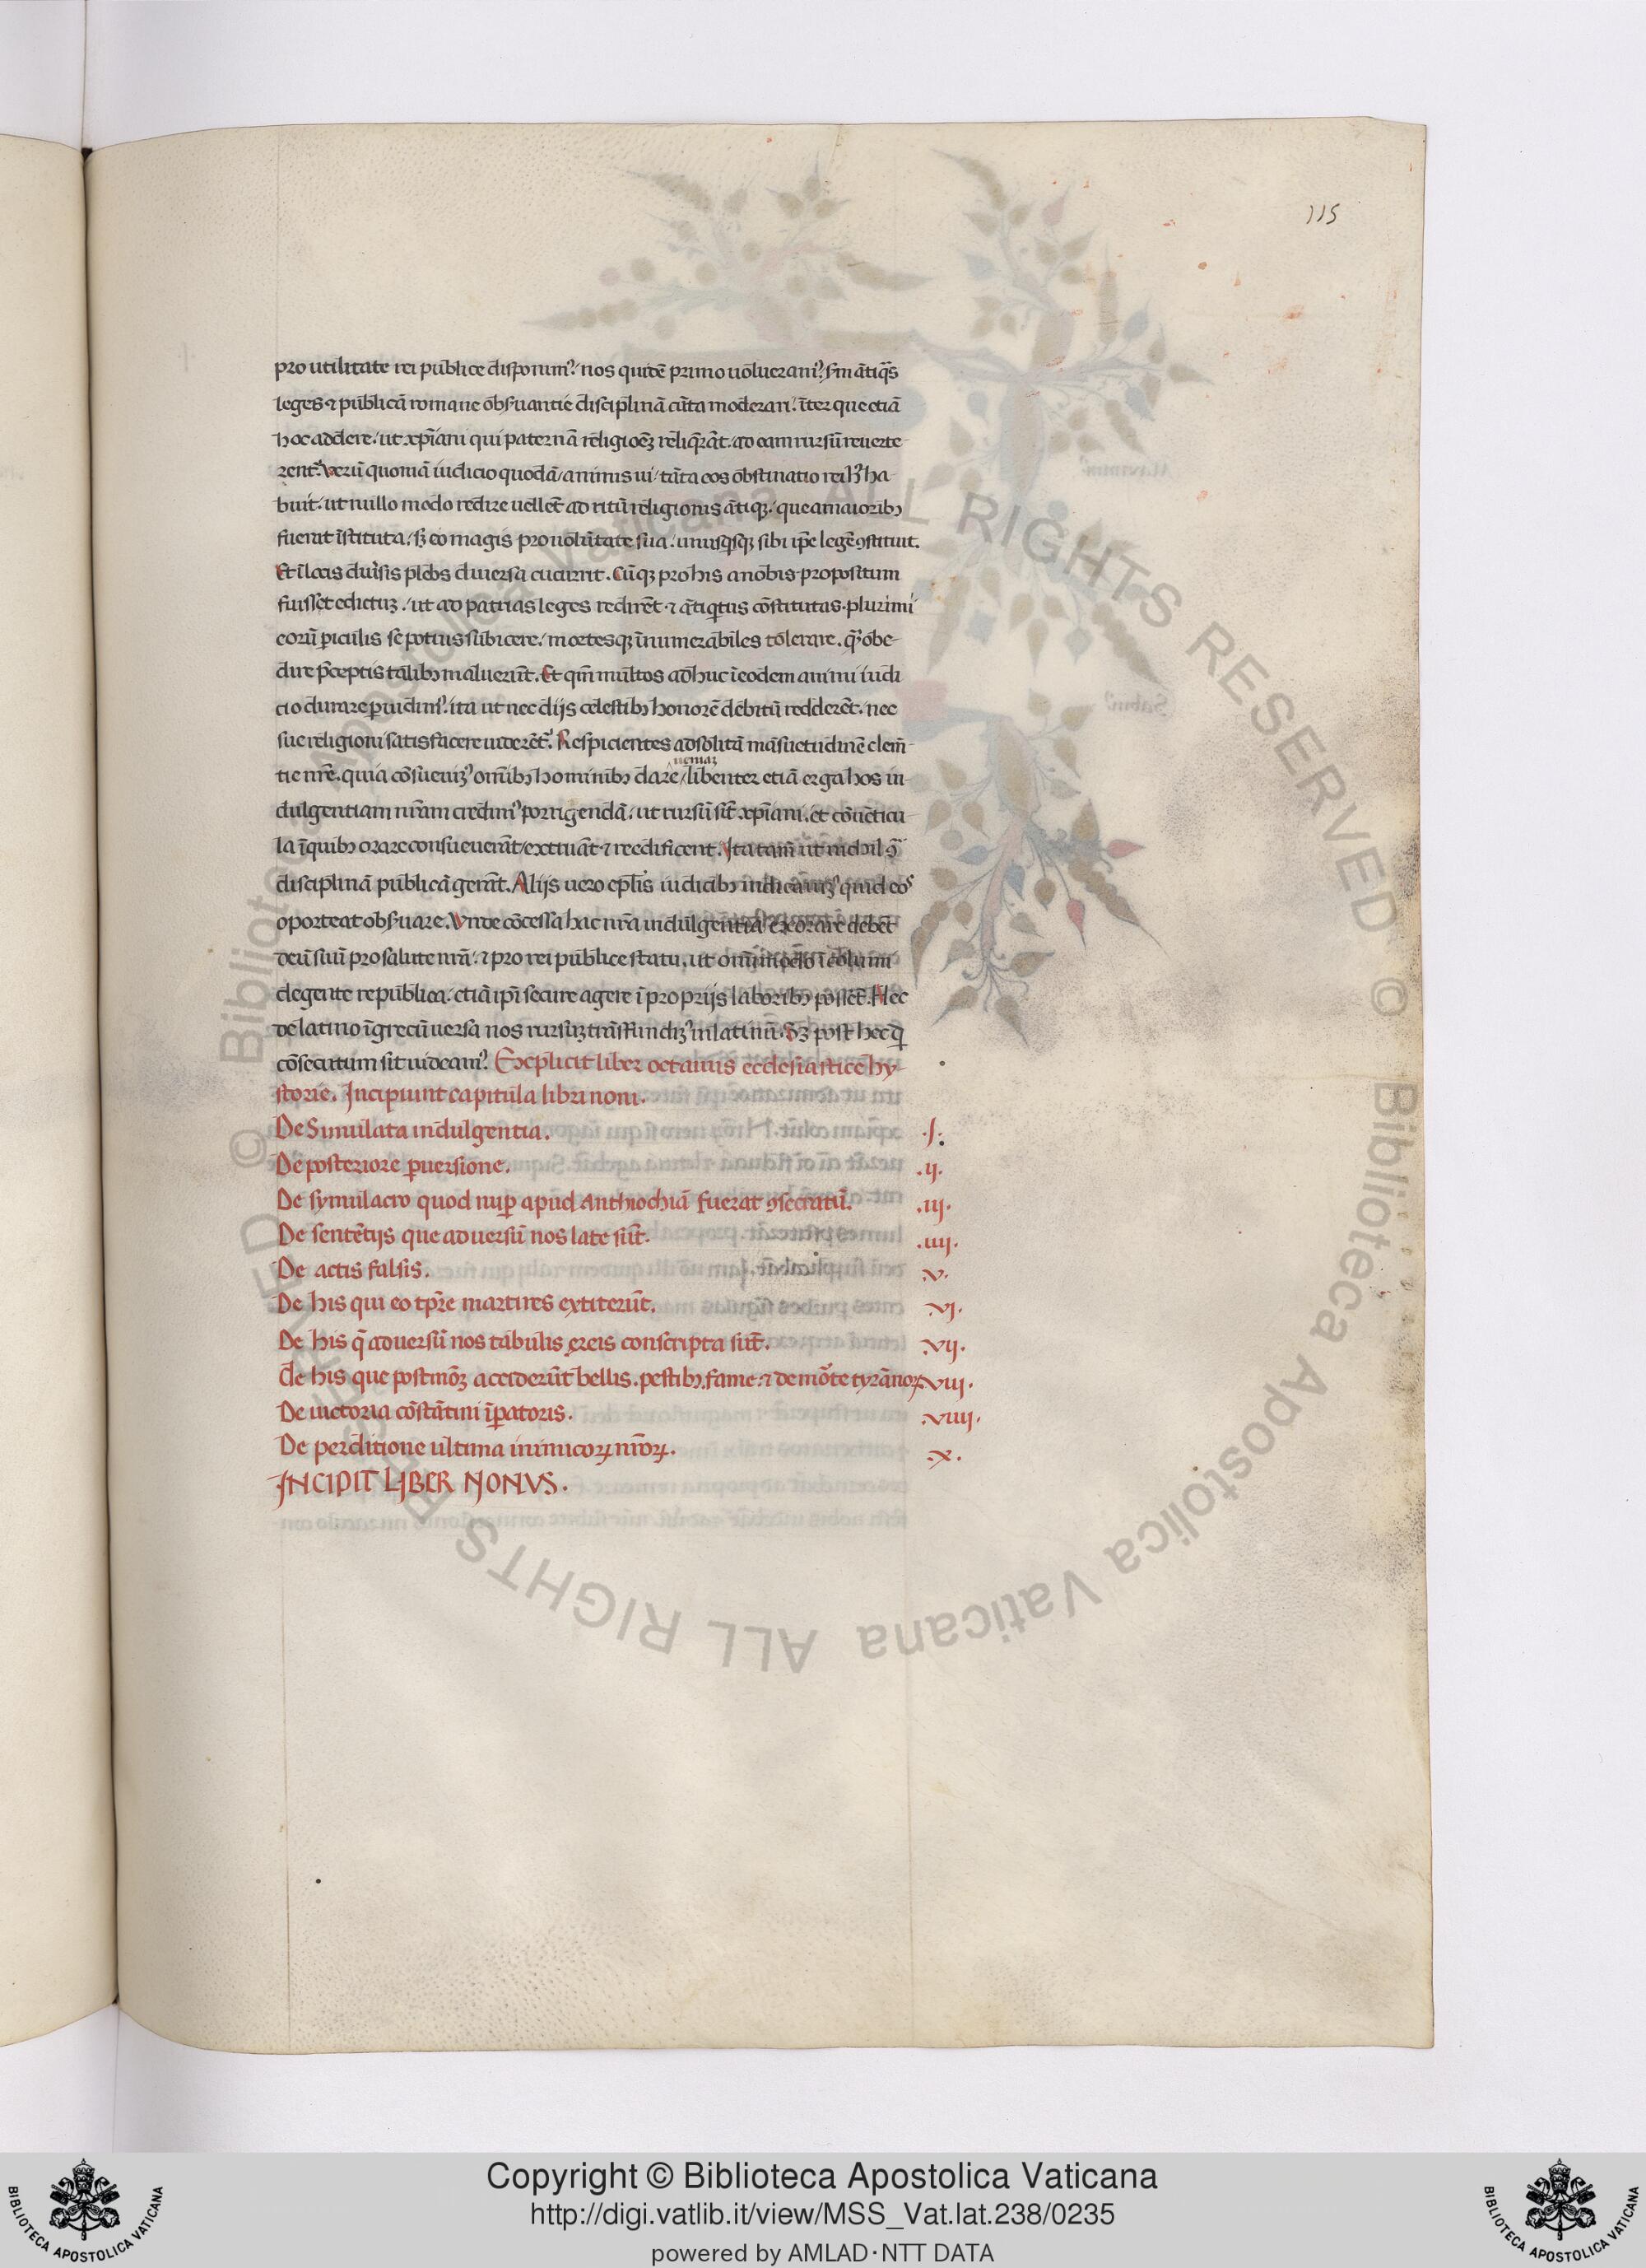 115
pro utilitate rei publice disponimꝰ. nos quidē primo uolueramꝰ. s̄m ātiq̄s
leges ⁊ publicā romane obſ̄uantie disciplinā cūta moderari. īter que etiā
hoc addere. ut xp̄iani qui paternā religioēꝫ reliq̄rāt. ad eam rursū reuerte-
rent᷑. Verū quoniā iudicio quodā animis
buit. ut nullo modo redire uellēt ad ritū religionis ātiqꝫ. que a maioribꝫ
fuerat īstituta. sꝫ eo magis pro uolūtate sua. unusq̄sqꝫ sibi ip̄e legē ꝯstituit.
Et ī locis diu̾sis plebs diuersa cucurrit. Cūqꝫ pro his a nobis propositum
fuisset edictuꝫ. ut ad patrias leges redirēt ⁊ ātiq̇tus cōstitutas. plurimi
eorū ꝑiculis se potius subicere. mortesqꝫ īnumerabiles tolerare. q̄ꝫ obe-
dire p̄ceptis talibꝫ maluerūt. Et qm̄ multos adhuc ī eodem animi iudi
cio durare ꝑuidimꝰ. ita ut nec dijs celestibꝫ honorē debitū redderēt. nec
sue religioni satisfacere uiderēt᷑. Respicientes ad solitā māsuetudinē clem̄-
tie nr̄e. quia cōsueuimꝰ om̄ibꝫ hominibꝫ dare ueniaꝫ libenter etiā erga hos in-
dulgentiam nr̄am credimꝰ porrigendā. ut rursū sīt xp̄iani. et cōuēticu
la ī quibꝫ orare consueuerāt extruāt ⁊ reedificent. Ita tam̄ ut nichil ꝯ̄
disciplinā publicā gerāt. Alijs uero ep̄lis iudicibꝫ indicauimꝰ quid eos
oporteat obſ̄uare. Vnde cōcessa hac nr̄a indulgentia exorare debēt
deū suū pro salute nr̄a. ⁊ pro rei publice statu. ut om̄imodo īcolumi
degente republica. etiā ip̄i secure agere ī proprijs laboribꝫ possēt. Hec
de latino ī grecū uersa nos rursuꝫ trāsfundimꝰ in latinū. Sꝫ post hec q̄
cōsecutum sit uideamꝰ. Explicit liber octauus ecclesiastice hy-
storie. Incipiunt capitula libri noni.
De Simulata indulgentia. .I.
De posteriore ꝑuersione. .ij.
De symulacro quod nuꝑ apud Anthiochiā fuerat ꝯsecratū. .iij.
De sentētijs que aduersū nos late sūt. .iiij.
De actis falsis. .v.
De his qui eo tp̄re martires extiterūt. .vj.
De his q̄ aduersū nos tabulis ereis conscripta sūt. .vij.
De his que postmōꝫ acciderūt bellis. pestibꝫ. fame. ⁊ de mōte tyrānoꝝ .viij.
De uictoria cōstātini īꝑatoris. .viiij.
De perditione ultima inimicoꝝ nr̄oꝝ. .x.
INCIPIT LIBER NONVS.
© Biblioteca Apostolica Vaticana ALL RIGHTS RESERVED © Biblioteca Apostolica Vaticana ALL RIGHTS RESERVED
Copyright © Biblioteca Apostolica Vaticana
http://digi.vatlib.it/view/MSS_Vat.lat.238/0235
powered by AMLAD·NTT DATA
BIBLIOTECA APOSTOLICA VATICANA
BIBLIOTECA APOSTOLICA VATICANA